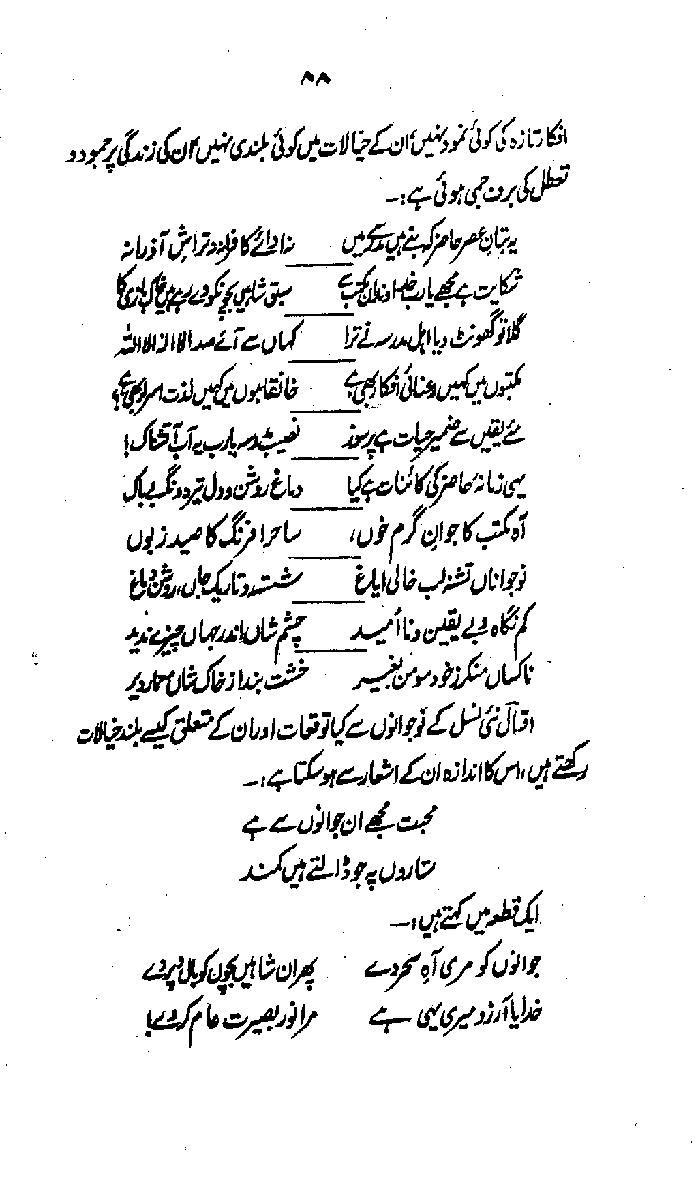 ۸۸
افکار تازہ کی کوئی نمود نہیں، ان کے خیالات میں کوئی بلندی نہیں، ان کی زندگی پر جمود و
تعطل کی برف جمی ہوئی ہے :-
یہ بتانِ عصرِ حاضر کہ بنے ہیں مدرسے میں نہ ادائے کافرانہ نہ تراشِ آذرانہ
شکایت ہے مجھے یارب خداوندانِ مکتب سے سبق شاہیں بچوں کو دے رہے ہیں خاکبازی کا
گلا تو گھونٹ دیا اہلِ مدرسہ نے ترا کہاں سے آئے صدا لا الٰہ الا اللہ
مکتبوں میں کہیں رعنائی افکار بھی ہے؟ خانقاہوں میں کہیں لذت اسرار بھی ہے؟
مئے یقیں سے ضمیر حیات ہے پرسوز نصیب مدرسہ یارب یہ آب آتشناک!
یہی زمانہ حاضر کی کائنات ہے کیا دماغ روشن و دل تیرہ و نگہ بے باک
آہ مکتب کا جوانِ گرم خوں، ساحر افرنگ کا صید زبوں
نوجواناں تشنہ لب خالی ایاغ شستہ رو تاریک جاں، روشن دماغ
کم نگاہ و بے یقین و نا امید چشم شاں اندر جہاں چیزے ندید
ناکساں منکر ز خود مومن بغیر خشت بند از خاک شاں معمار دیر
اقبال نئی نسل کے نوجوانوں سے کیا توقعات اور ان کے متعلق کیسے بلند خیالات
رکھتے ہیں، اس کا اندازہ ان کے اشعار سے ہو سکتا ہے :-
محبت مجھے ان جوانوں سے ہے
ستاروں پہ جو ڈالتے ہیں کمند
ایک قطعہ میں کہتے ہیں :-
جوانوں کو مری آہِ سحر دے پھر ان شاہیں بچوں کو بال و پر دے
خدایا آرزو میری یہی ہے مرا نور بصیرت عام کر دے!